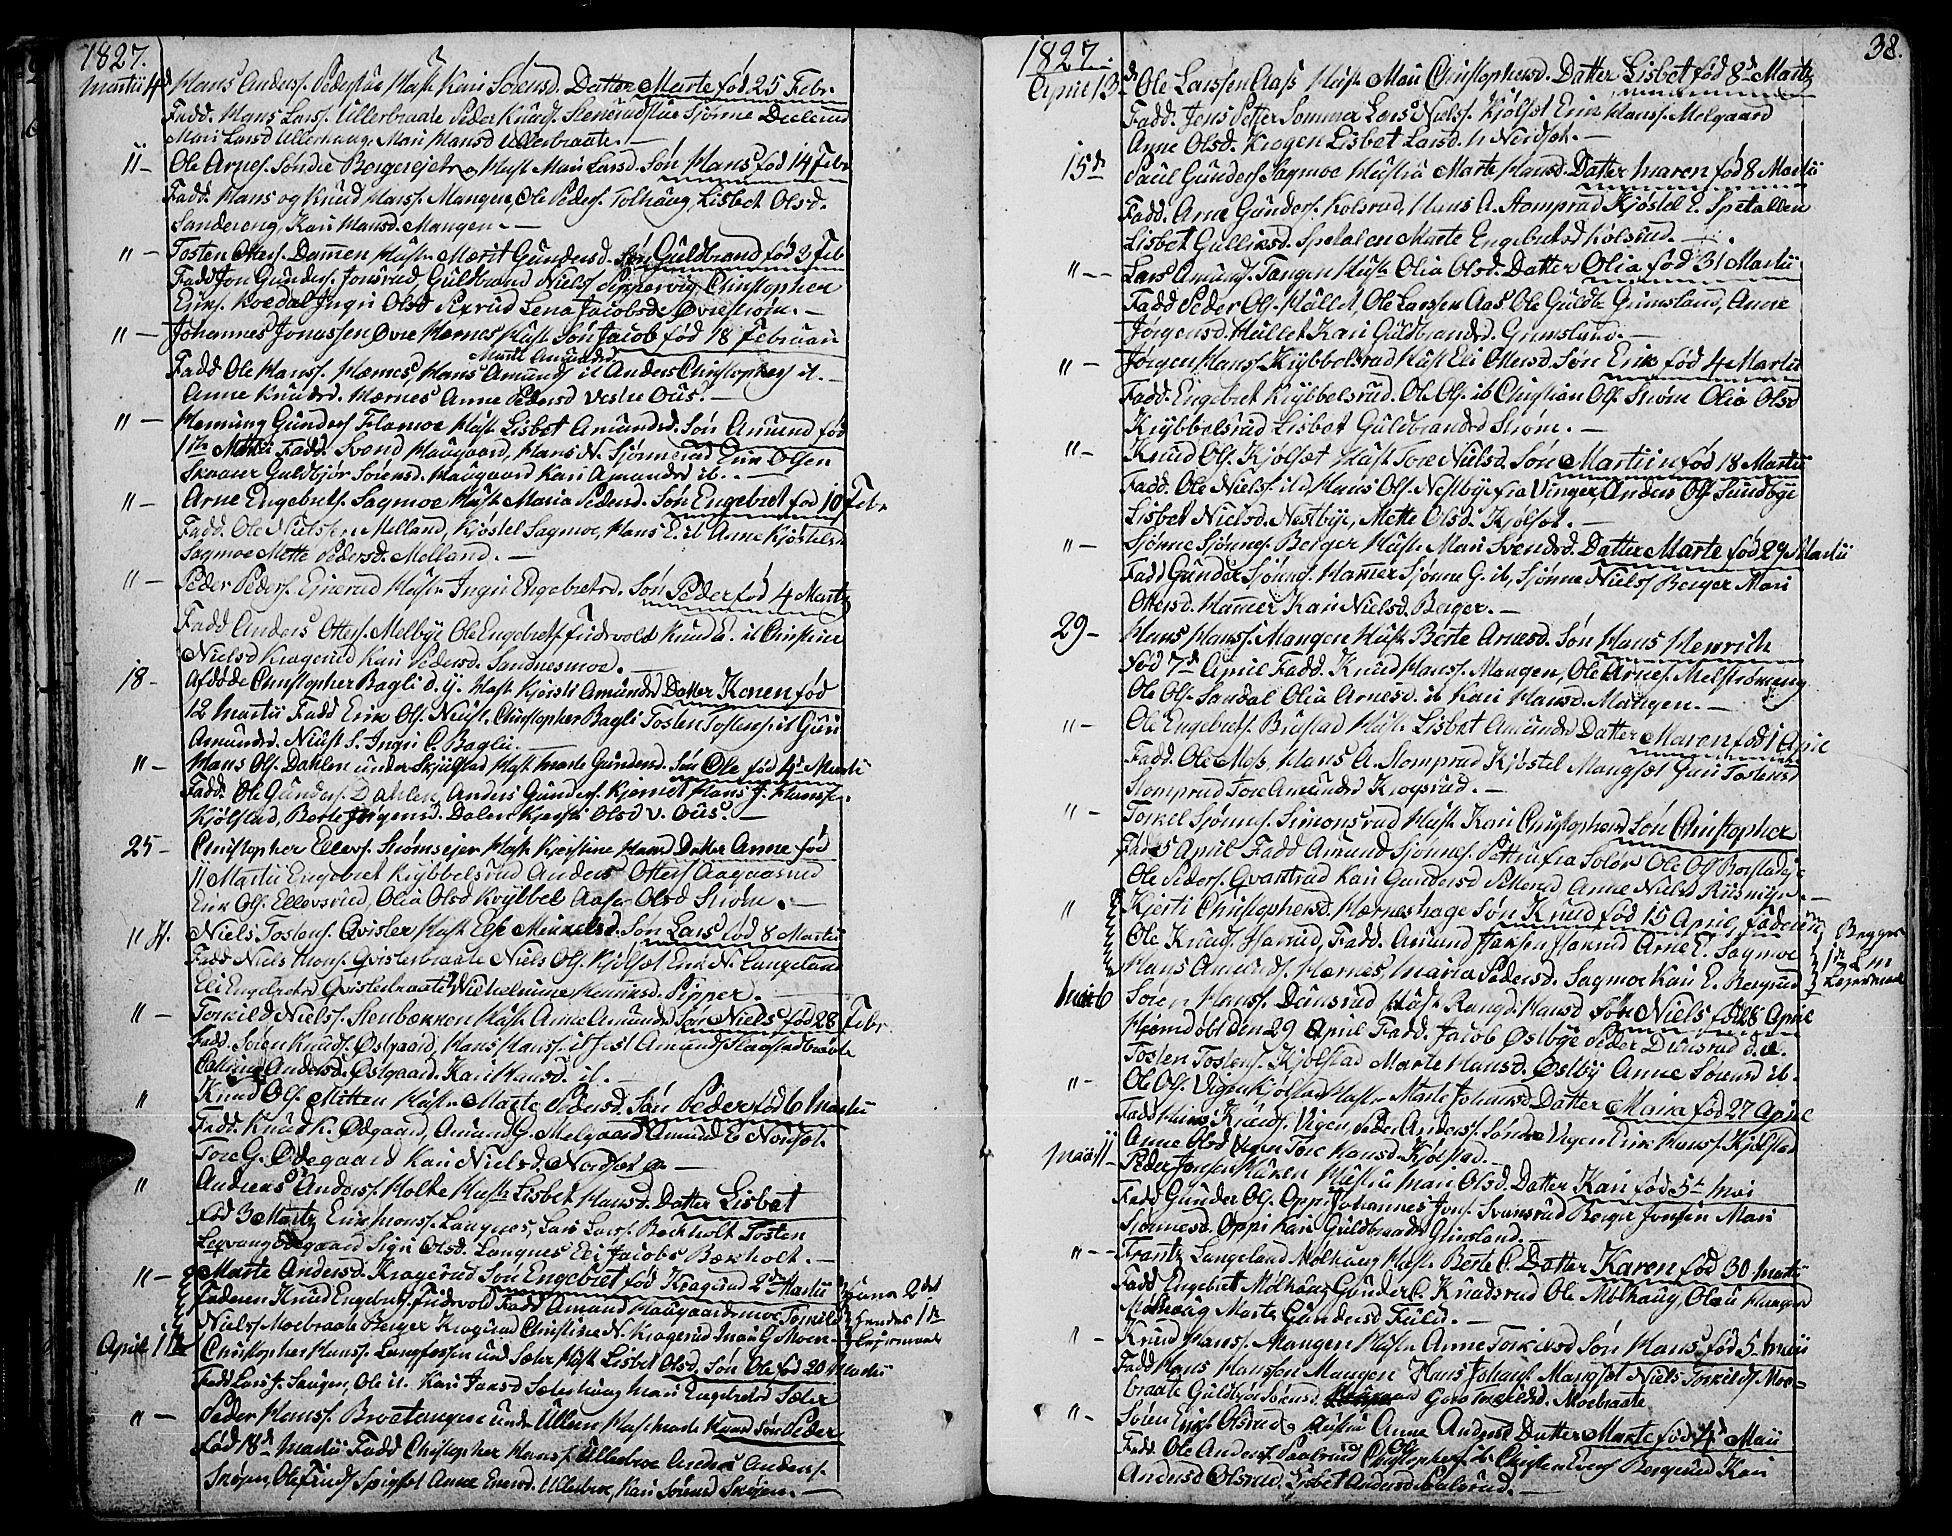 1827.
Martii 4d Hans Anders. Pederstue Hust. Kari Sørensd. Datter Marte fød 25 Febr.
Fadd. Hans Lars. Ullerbraate Peder Knuds. Stenerudstue Sjønne Deelerud
Mari Larsd Ullerhaug, Mari Hansd Ullerbraate. —
11 — Ole Arnes. Søndre Bergerejet Hust. Mari Larsd. Søn Hans, fød 14 Febr
Fadd. Hans og Knud Hans. Mangen, Ole Peders. Tolhaug, Lisbet Olsd.
Sandereng, Kari Hansd. Mangen. —
" — Tosten Ottes. Dammen Hust. Marit Gundersd. Søn Guldbrand fød 3 Feb
Fadd Jon Gunders. Jonsrud, Guldbrand Niels. Sippervig, Christopher
Eriks. Noedal Ingri Olsd Sexrud Lena Jacobsd Øvrestrøm. —
" — Johannes Jonassen Øvre Hærnes Hust. Marte Amundsd Søn Jacob fød 18 Februari
Fadd Ole Hans. Hærnes, Hans Amunds. ib Anders Christophers ib. —
Anne Knudsd. Hærnes Anne Pedersd Vestre Ous. —
" — Henning Gunders Flamoe Hust. Lisbet Amundsd. Søn Amund fød
1te Martii Fadd. Svend Haugaard, Hans N. Sjønnerud Erik Olsen
Skaarer Guldbjør Sørensd. Haugaard Kari Amundsd ib. —
" — Arne Engebrets. Sagmoe Hust. Maria Pedersd. Søn Engebret fød 10 Febr.
Fadd. Ole Nielsen Melland, Kjøstel Sagmoe, Hans E. ib Anne Kjøstelsd
Sagmoe Mette Pedersd. Melland. —
" — Peder Peders. Ejnerud Hust. Ingri Engebretsd. Søn Peder fød 4 Martz
Fadd Anders Ottes. Melbye Ole Engebrets. Fudvold Knud E. ib Christine
Nielsd Kragerud Kari Pedersd. Sandnesmoe. —
18 — Afdøde Christopher Bagli d. y. Hust. Kjøisti Amundsd Datter Karen fød
12 Martii Fadd Erik Ols. Neust. Christopher Bagli Tosten Tostens. ib Guri
Amundsd. Neust. S. Ingri C. Bagli. —
" — Hans Ols. Dahlen under Skjulstad Hust. Marte Gundersd. Søn Ole fød 4d Martii
Fadd. Ole Gunders. Dahlen, Anders Gunders. Kjernet Hans J. Hamst.
Kjølstad, Berte Ingensd. Dalen Kjersti Olsd V. Ous. —
25 — Christopher Ellevs. Strømsejer Hust. Kjerstine Hansd Datter Anne fød
11 Martii Engebret Krybbelsrud Anders Ottes. Aagaasrud
Erik Ols. Ellevsrud, Olia Olsd Krybbel Aase Olsd Strøm. —
" Niels Tostens. Qvister Hust. Else Mikkelsd. Søn Lars fød 8 Martii
Fadd Niels Thors. Qvisterbraate Niels Ols. Kjølset Erik N. Langeland
Eli Engebretsd Qvisterbraate Wilhelmine Henriksd. Sipper. —
" — Torkild Niels. Stenbækken Hust. Anne Amundsd Søn Niels fød 28 Febr.
Fadd. Søren Knuds. Østgaard, Hans Hans. ib Jens Amunds Slaastadbraate
Cathrine Andersd. Østgaard. Kari Hansd. ib. —
" Knud Ols. Mitten Hust. Marte Pedersd. Søn Peder fød 6 Martii
Fadd. Knud K. Ødgaard, Amund G. Melgaard Amund E. Nordset.
Tore G. Ødegaard Kari Nielsd. Nordset. —
" Andreas Anders. Holte Hust. Lisbet Hansd. Datter Lisbet
fød 3 Martz Erik Mons. Langnes, Lars Lars. Beckholt Tosten
Leqvang Ødegaard Sigri Olsd. Langnes Eli Jacobs Bækholt. —
" — Marte Andersd. Kragerud Søn Engebret fød Kragrud 2den Martii
Faderen Knud Engebrets. Fudvold Fadd Amund Haugaardsmoe Torkild
Niels. Moebraate Berger Kragerud Christine N. Kragerud Mari G Moen. —
2det
1te
Lejermaal
April 1te Christopher Hans. Langfossen und. Sæter Hust. Lisbet Olsd. Søn Ole fød 20 Martii
Fadd Lars J. Saugen, Ole ib. Kari Jansd Sæterhaug Mari Engebretsd Sæter
" — Peder Hans. Broetangen under Ullern Hust. Marte Knudsd Søn Peder
fød 18d Martii Fadd Christopher Hans. Ullerbroe Anders Anders.
Skøien, Ole Ends. Spigset Anne Enersd. Ullerbroe, Kari Sørensd Skøien. —
1827.
38.
April 13de Ole Larssen Aass Hust. Mari Christophersd. Datter Lisbet fød 8d Martz
Fadd. Jens Petter Sommer Lars Niels. Kjølset Erik Hans. Melgaard
Anne Olsd. Krogen Lisbet Larsd. N. Nordset. —
15de Paul Gunders. Sagmoe Hustru Marte Hansd. Datter Maren fød 8 Martii
Fadd. Arne Gunders. Kolsrud, Hans A. Stomprud Kjøstel E. Spetalden
Lisbet Gulliksd. Spetalen Marte Engebretsd Kolsrud. —
" — Lars Amunds. Tangen Hust. Olia Olsd. Datter Olia fød 31 Martii
Fadd Peder Ols. Hullet, Ole Larssen Aas Ole Guldbr. Grimsland, Anne
Jørgensd. Hullet Kari Guldbrandsd. Grimsland. —
" — Jørgen Hans. Krybbelsrud Hust. Eli Ottersd. Søn Erik fød 4 Martii
Fadd. Engebret Krybbelsrud. Ole Ols. ib Christian Ols. Strøm Olia Olsd
Krybbelsrud Lisbet Guldbrandsd Strøm. —
" — Knud Ols. Kjølset Hust. Tore Nielsd. Søn Martin fød 18 Martii
Fadd. Ole Niels. ib Hans Ols. Nestbye fra Vinger, Anders Ols Sundbye
Lisbet Nielsd. Nestbye, Mette Olsd. Kjølset. —
" — Sjønne Sjønnes. Berger Hust. Mari Svendsd. Datter Marte fød 29 Martii
Fadd Gunder Sjønnes. Hammer Sjønne G. ib, Sjønne Niels. Berger Mari
Ottersd. Hammer Kari Nielsd. Berger. —
29 — Hans Hans. Mangen Hust. Berte Arnesd. Søn Hans Henrich
fød 7d April Fadd. Knud Hans. Mangen, Ole Arnes. Melstrømeng
Ole Ols. Sandal Olia Arnesd. ib Kari Hansd. Mangen. —
" — Ole Engebrets. Bustad Hust. Lisbet Amundsd Datter Maren fød 1 April
Fadd. Ole Moss, Hans A. Stomprud Kjøstel Mangset Guri Tostensd
Stomprud Tore Amundsd Krogsrud. —
" — Torkel Sjønnes. Simonsrud Hust. Kari Christophersd Søn Christopher
fød 5 April Fadd Amund Sjønnes. Pettru fra Solør Ole Ols Borstad
Ole Peders. Qvantrud Kari Gundersd Setterud Anne Nielsd Riismyr. —
" Kjersti Christophersd. Hærneshage Søn Knud fød 15 April, Faderen
Ole Knuds. Harud, Fadd. Amund Hansen Harud Arne E. Sagmoe
Hans Amunds. Hærnes, Maria Pedersd. Sagmoe Kari E. Rergrud
Begges
1te
Lejermaal
Maii 6 Søren Hans. Dunsrud Hust. Rangd. Hansd Søn Niels fød 28 April
Hjemdøbt den 29 April Fadd. Jacob Østbye Peder Dunsrud d. æ.
Tosten Tostens. Kjølstad Marte Hansd. Østby Anne Sørensd ib.
" — Ole Ols. Vigen Kjølstad Hust. Marte Johansd. Datter Maria fød 27 April
Fadd Hans Knuds. Vigen, Peder Anders. Søndre Vigen Erik Hans. Kjølstad
Anne Olsd Vigen Tore Hansd. Kjølstad. —
Maii 11 — Peder Jonsen Huken Hustru Mari Olsd. Datter Kari fød 5te Mai
Fadd Gunder Ols. Oppi Johannes Jons. Svensrud Berger Jonsen Mari
Sjønnesd. Oppi Kari Guldbrandsd Grimsland. —
" — Frantz Langeland Molhaug Hust. Berte C. Datter Karen fød 30 Martii
Fadd Engebret Molhaug Gunder C. Knudsrud Ole Molhaug, Olia Hansd
Molhaug Marte Gundersd Fulu. —
" — Knud Hans. Mangen Hust. Anne Torkildsd Søn Hans fød 5 Maii
Fadd Hans Hanssen Mangen Hans Johans. Mangset Niels Torkilds Moe=
braate Guldbjør Sørensd. Goro Torkildsd. Moebraate
" — Søren Eriks. Olsrud, Hustru Anne Andersd Datter Marte fød 4d Maii
Fadd. Ole Anders. Paalsrud Ole Christophers. ib Christen Evens Bergerud Kari
Andersd Olsrud, Lisbet Andersd Paalsrud. —